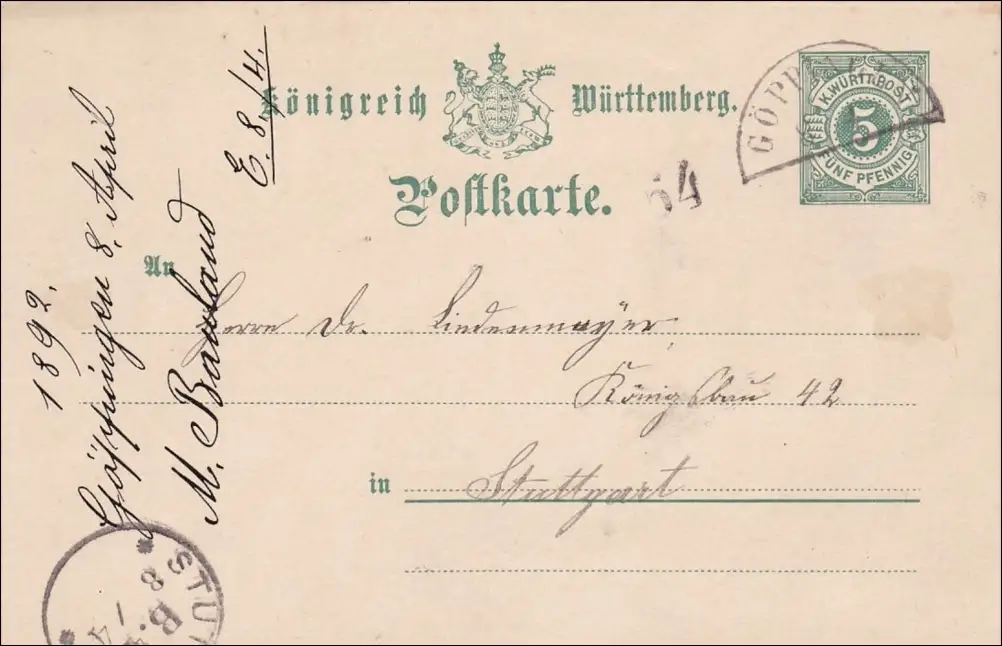 Königreich Württemberg.
Postkarte.
K. WÜRTT. POST
5
FÜNF PFENNIG
GÖPP
54
An
Herrn Dr. Lindenmayer
Königsbau 42
in Stuttgart
1892.
Göppingen 8. April
M.
E. 8./4.
STUT
8
B.